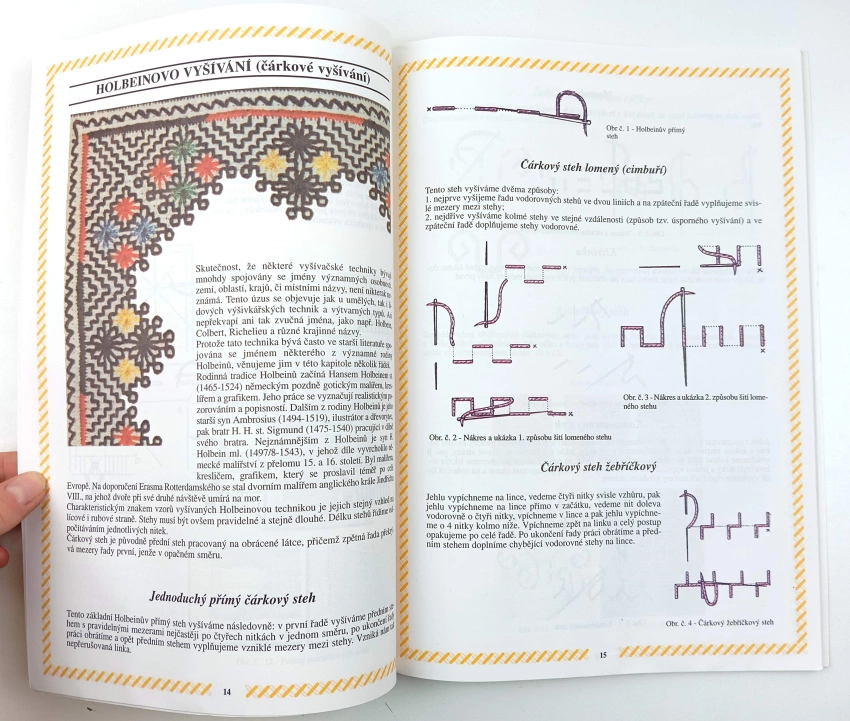 HOLBEINOVO VYŠÍVÁNÍ (čárkové vyšívání)
Skutečnost, že některé vyšívačské techniky bývají
mnohdy spojovány se jmény významných osobností,
zemí, oblastí, krajů, či místními názvy, není nikterak
známá. Tento úzus se objevuje jak u umělých, tak i
dových výšivkářských technik a výtvarných typů. Ani
nepřekvapí ani tak zvučná jména, jako např. Holbein,
Colbert, Richelieu a různé krajinné názvy.
Protože tato technika bývá často ve starší literatuře spo-
jována se jménem některého z významné rodiny
Holbeinů, věnujeme jim v této kapitole několik řádků.
Rodinná tradice Holbeinů začíná Hansem Holbeinem st.
(1465-1524) německým pozdně gotickým malířem, kres-
lířem a grafikem. Jeho práce se vyznačují realistickým po-
zorováním a popisností. Dalším z rodiny Holbeinů je jeho
starší syn Ambrosius (1494-1519), ilustrátor a dřevorytec,
pak bratr H. H. st. Sigmund (1475-1540) pracující v dílně
svého bratra. Nejznámnějším z Holbeinů je syn H.
Holbein ml. (1497/8-1543), v jehož díle vyvrcholilo ně-
mecké malířství z přelomu 15. a 16. století. Byl malířem,
kresličem, grafikem, který se proslavil téměř po celé
Evropě. Na doporučení Erasma Rotterdamského se stal dvorním malířem anglického krále Jindřicha
VIII., na jehož dvoře při své druhé návštěvě umírá na mor.
Charakteristickým znakem vzorů vyšívaných Holbeinovou technikou je jejich stejný vzhled na
lícové i rubové straně. Stehy musí být ovšem pravidelné a stejně dlouhé. Délku stehů řídíme
počítáváním jednotlivých nitek.
Čárkový steh je původně přední steh pracovaný na obrácené látce, přičemž zpětná řada překrý-
vá mezery řady první, jenže v opačném směru.
Jednoduchý přímý čárkový steh
Tento základní Holbeinův přímý steh vyšíváme následovně: v první řadě vyšíváme předním ste-
hem s pravidelnými mezerami nejčastěji po čtyřech nitkách v jednom směru, po ukončení řady
práci obrátíme a opět předním stehem vyplňujeme vzniklé mezery mezi stehy. Vzniká nám
nepřerušovaná linka.
14
Obr č. 1 - Holbeinův přímý
steh
Čárkový steh lomený (cimbuří)
Tento steh vyšíváme dvěma způsoby:
1. nejprve vyšijeme řadu vodorovných stehů ve dvou liniích a na zpáteční řadě vyplňujeme svis-
lé mezery mezi stehy;
2. nejdříve vyšíváme kolmé stehy ve stejné vzdálenosti (způsob tzv. úsporného vyšívání) a ve
zpáteční řadě doplňujeme stehy vodorovné.
Obr. č. 2 - Nákres a ukázka 1. způsobu šití lomeného stehu
Obr. č. 3 - Nákres a ukázka 2. způsobu šití lome-
ného stehu
Čárkový steh žebříčkový
Jehlu vypíchneme na lince, vedeme čtyři nitky svisle vzhůru, pak
jehlu vypíchneme na lince přímo v začátku, vedeme nit doleva
vodorovně o čtyři nitky, vpíchneme v lince a pak jehlu vypíchne-
me o 4 nitky kolmo níže. Vpíchneme zpět na linku a celý postup
opakujeme po celé řadě. Po ukončení řady práci obrátíme a před-
ním stehem doplníme chybějící vodorovné stehy na lince.
Obr. č. 4 - Čárkový žebříčkový steh
15